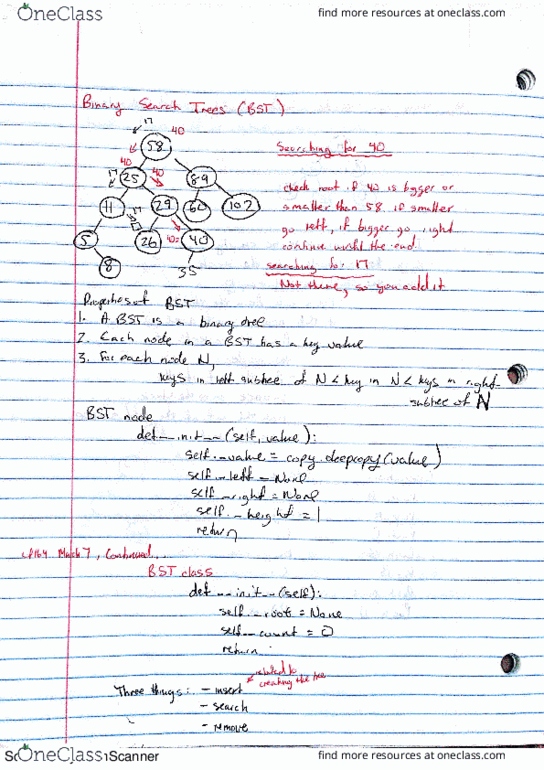 OneClass
find more resources at oneclass.com
Binary Search Trees (BST)
17
40
58
Searching for 40
40
17
25
40
89
check root if 40 is bigger or
11
17
29
60
102
smaller than 58. if smaller
go left, if bigger go right
5
26
40=
40
continue until the end.
8
35
searching for 17
Not there, so you add it
Properties of BST
1. A BST is a binary tree
2. Each node in a BST has a key value
3. For each node N,
keys in left subtree of N < key in N < keys in right
subtree of N
BST node
def __init__(self, value):
self._value = copy.deepcopy(value)
self._left = None
self._right = None
self._height = 1
return
cp164 March 7, Continued...
BST class
def __init__(self):
self._root = None
self._count = 0
return
related to
creating the tree
Three things: - insert
- search
- remove
OneClass
Scanner
find more resources at oneclass.com